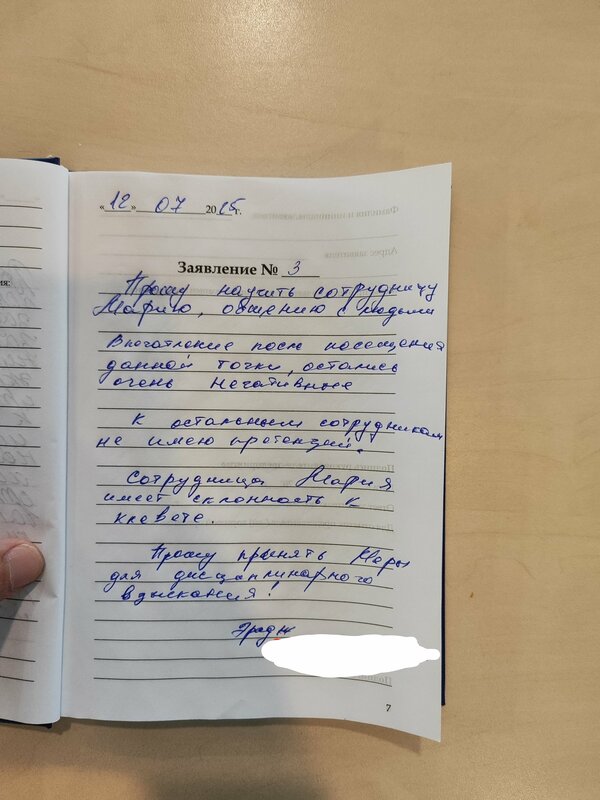 «12» 07 2025 г.
Заявление № 3
Прошу научить сотрудницу
Марию, общению с людьми
Впечатление после посещения
данной точки, остались
очень негативные
К остальным сотрудникам
не имею претензий.
Сотрудница Мария
имеет склонность к
клевете.
Прошу принять меры
для дисциплинарного
взыскания!
7